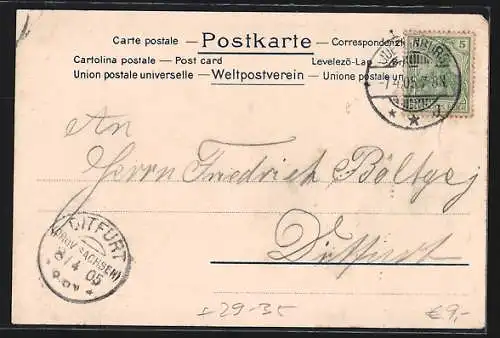 Carte postale – Postkarte – Correspondenzk
Cartolina postale – Post card Levelező-Lap
Union postale universelle – Weltpostverein – Unione postale un
5
7.4.05.7-8V.
An
Herrn Friedrich
Ditfurt
DITFURT
(PROV. SACHSEN)
8/4 05
±29-35
€9,-